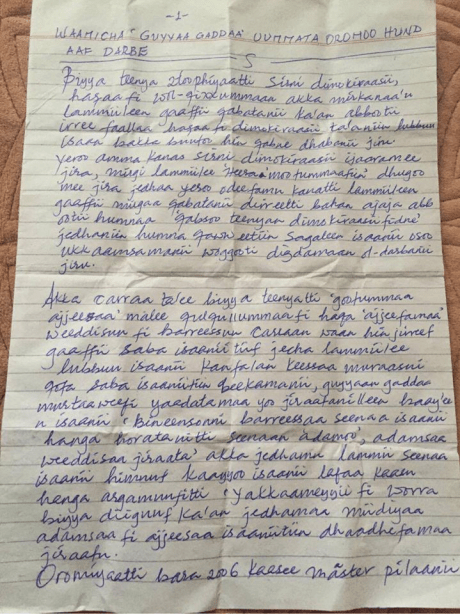 -1-
WAAMICHA GUYYAA GADDAA UUMMATA OROMOO HUND
AAF DARBE
Biyya teenya itoophiyaatti Sirni dimokiraasii,
haqaa fi ummaan akka mirkanaa'u
lammiileen gaaffii gabatanii ka'an abbootii
irree faallaa haqaa fi dimokiraasii ta'aniin lubbuu
isaan bakka buufoo hin qabne dhabanii jiru
yeroo amma kanas sirni dimokiraasii ijaaramee
jira, mirgi lammiilee dhugoo
mee jira jedhan yeroo odeefamu kanatti lammiileen
gaaffii mirgaa qabatanii dirreetti bahan ajaja abb
ootii humnaa teenyaan dimokiraasii fidne
jedhaniin humna isaanii osoo
ukkaamsamanii waggooti darbanii
jiru.
Akka carraa ta'ee biyya teenyatti gootummaa
ajjeesaa malee fi haqa ajjeefamaa
weeddisuu fi barreessuu waan hin jirreef
gaaffii saba isaanii tiif jecha lammiilee
lubbuu isaanii keessaa murnasni
gota saba isaaniitiin beekamanii, guyyaan gaddaa
yaadatamaa yoo jiraatanilleen baay'ee
n isaanii Bineensonni barreessaa seenaa isaanii
hanga horatanitti seenaan adamoo, adamsaa
weeddisaa jiraata' akka jedhamu lammii seenaa
isaanii himuuf kaayyoo isaanii lafaa kaasu
hanga argamuufitti fi worra
biyya diiguuf ka'an jedhamaa miidiyaa
adamsaa fi ajjeesaa isaaniitiin dhaadhefamaa
jiraatu.
Oromiyaatti bara 2006 kaasee master pilaanii